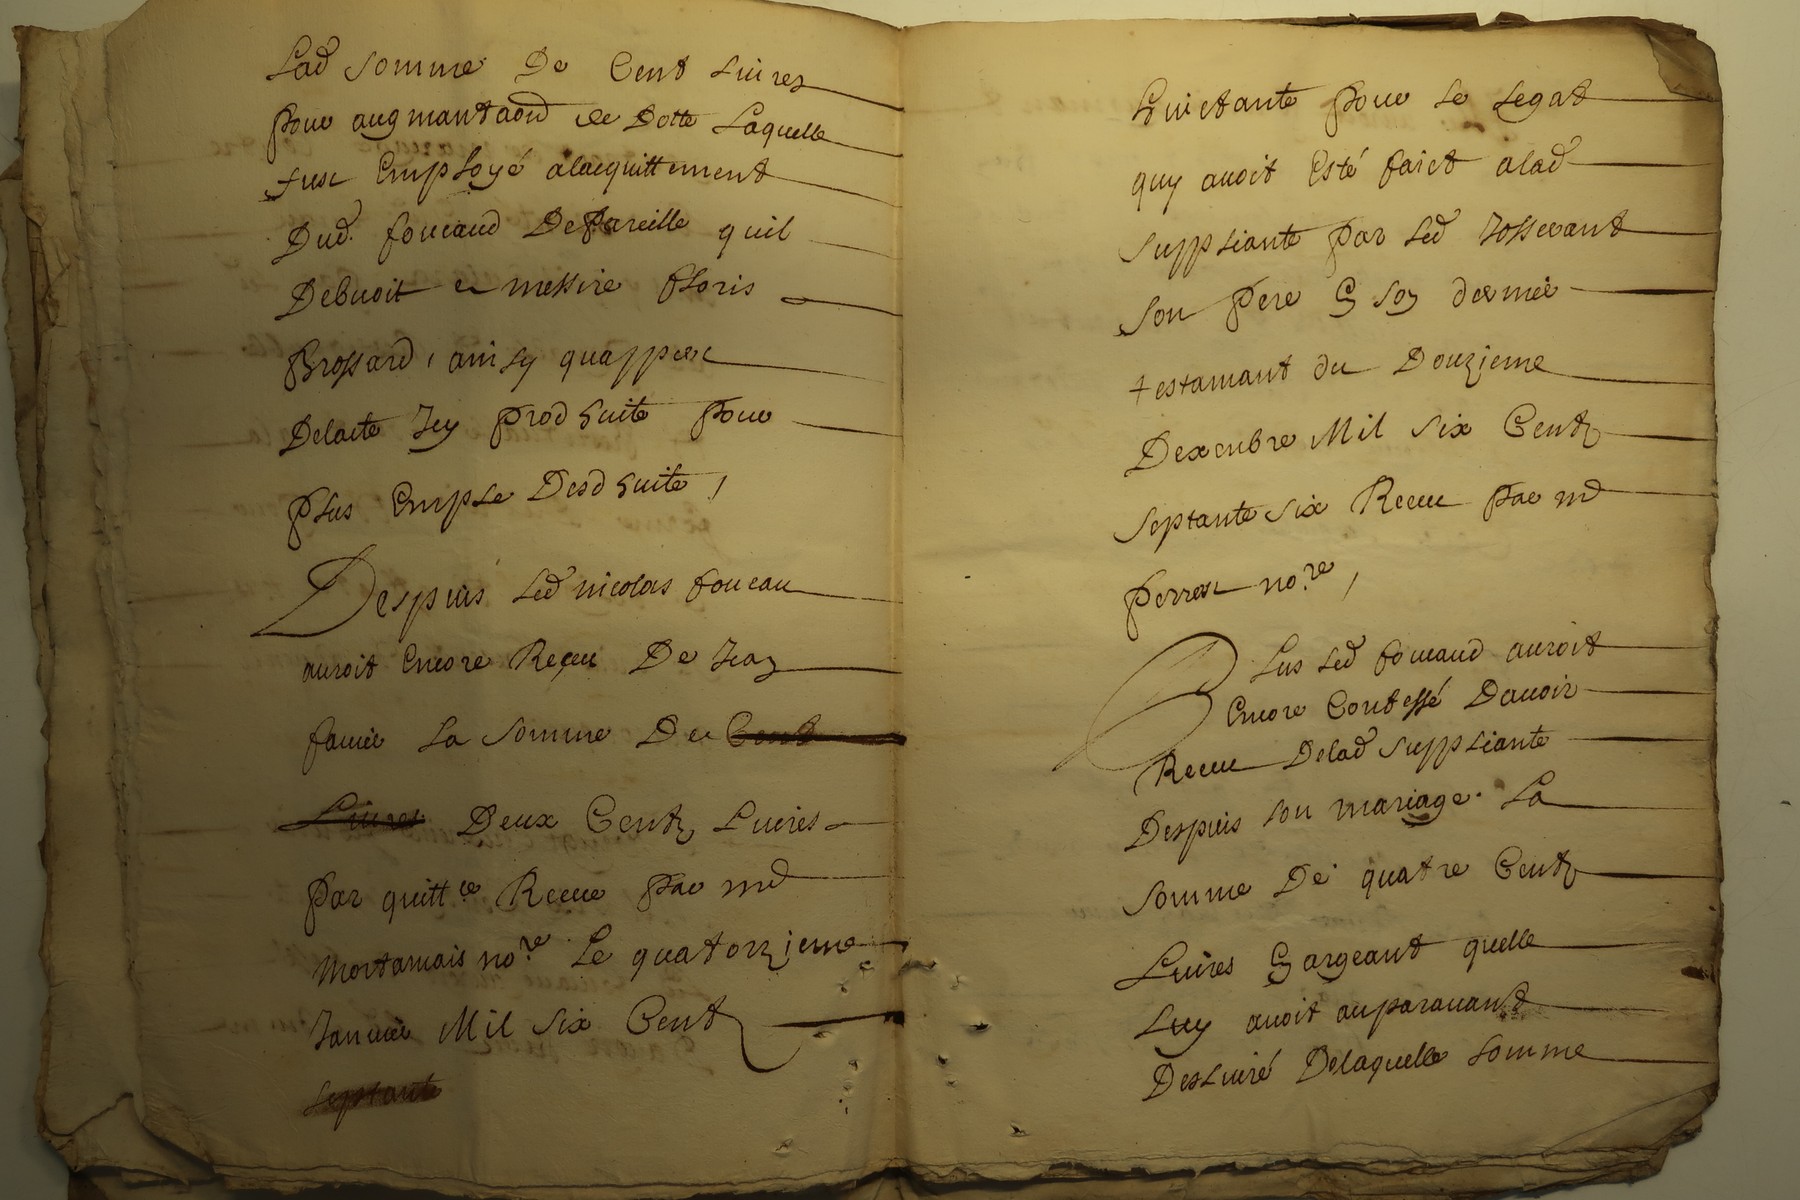 Lad somme De Cent Livres
pour augmantaon de Dotte Laquelle
fust Employé alacquittement
Dud. foucaud Depareille quil
Debvoit a messire floris
Brossard, ainsy quappert
Delacte Icy prod suitte pour
plus Emple Desd suitte,
Despuis led nicolas foucau
auroit Encore Reçeu De Jean
faurie La somme De Cent
Livres Deux Centz Livres
par quittce Recue par md
mortamais nore Le quatorzieme
Janvier Mil six Cent
septante
Quictante pour le Legat
quy avoit Esté faict alad
suppliante par led Josserant
son pere En son dernier
testamant du Douzieme
Dexenbre Mil six Centz
septante six Receu par md
perrou nore,
Plus led foucaud auroit
Encore Confessé Davoir
Receu Delad suppliante
Despuis son mariage La
somme De quatre Centz
Livres En argeant quelle
Luy avoit auparavant
Deslivré Delaquelle somme